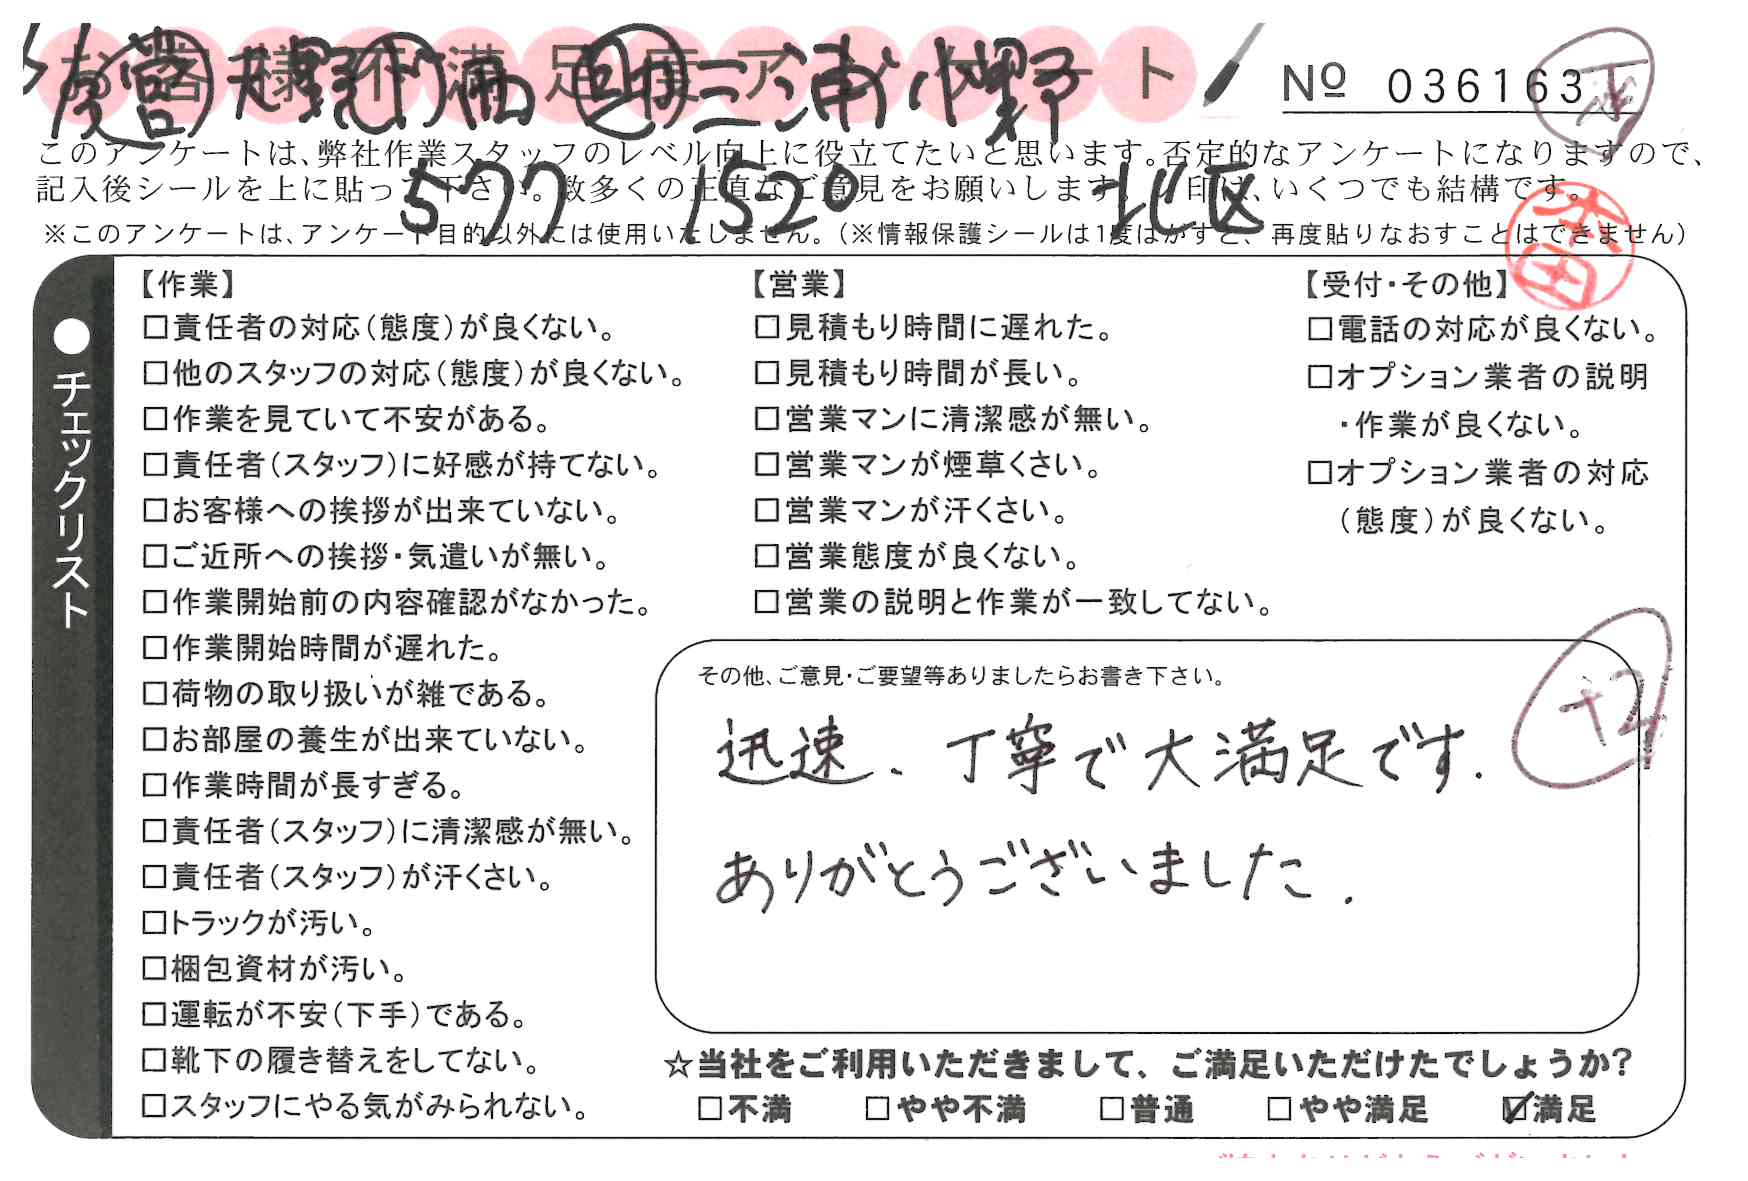 お客様不満足度アンケート
営 大澤 助 三浦 小野
№ 036163
このアンケートは、弊社作業スタッフのレベル向上に役立てたいと思います。否定的なアンケートになりますので、
記入後シールを上に貼って下さい。数多くの正直なご意見をお願いします。 印は、いくつでも結構です。
577 1520 北区
※このアンケートは、アンケート目的以外には使用いたしません。(※情報保護シールは1度はがすと、再度貼りなおすことはできません)
本田
●チェックリスト
【作業】
□責任者の対応(態度)が良くない。
□他のスタッフの対応(態度)が良くない。
□作業を見ていて不安がある。
□責任者(スタッフ)に好感が持てない。
□お客様への挨拶が出来ていない。
□ご近所への挨拶・気遣いが無い。
□作業開始前の内容確認がなかった。
□作業開始時間が遅れた。
□荷物の取り扱いが雑である。
□お部屋の養生が出来ていない。
□作業時間が長すぎる。
□責任者(スタッフ)に清潔感が無い。
□責任者(スタッフ)が汗くさい。
□トラックが汚い。
□梱包資材が汚い。
□運転が不安(下手)である。
□靴下の履き替えをしてない。
□スタッフにやる気がみられない。
【営業】
□見積もり時間に遅れた。
□見積もり時間が長い。
□営業マンに清潔感が無い。
□営業マンが煙草くさい。
□営業マンが汗くさい。
□営業態度が良くない。
□営業の説明と作業が一致してない。
【受付・その他】
□電話の対応が良くない。
□オプション業者の説明
・作業が良くない。
□オプション業者の対応
(態度)が良くない。
その他、ご意見・ご要望等ありましたらお書き下さい。
迅速、丁寧で大満足です.
ありがとうございました.
+2
☆当社をご利用いただきまして、ご満足いただけたでしょうか?
□不満 □やや不満 □普通 □やや満足 ☑満足